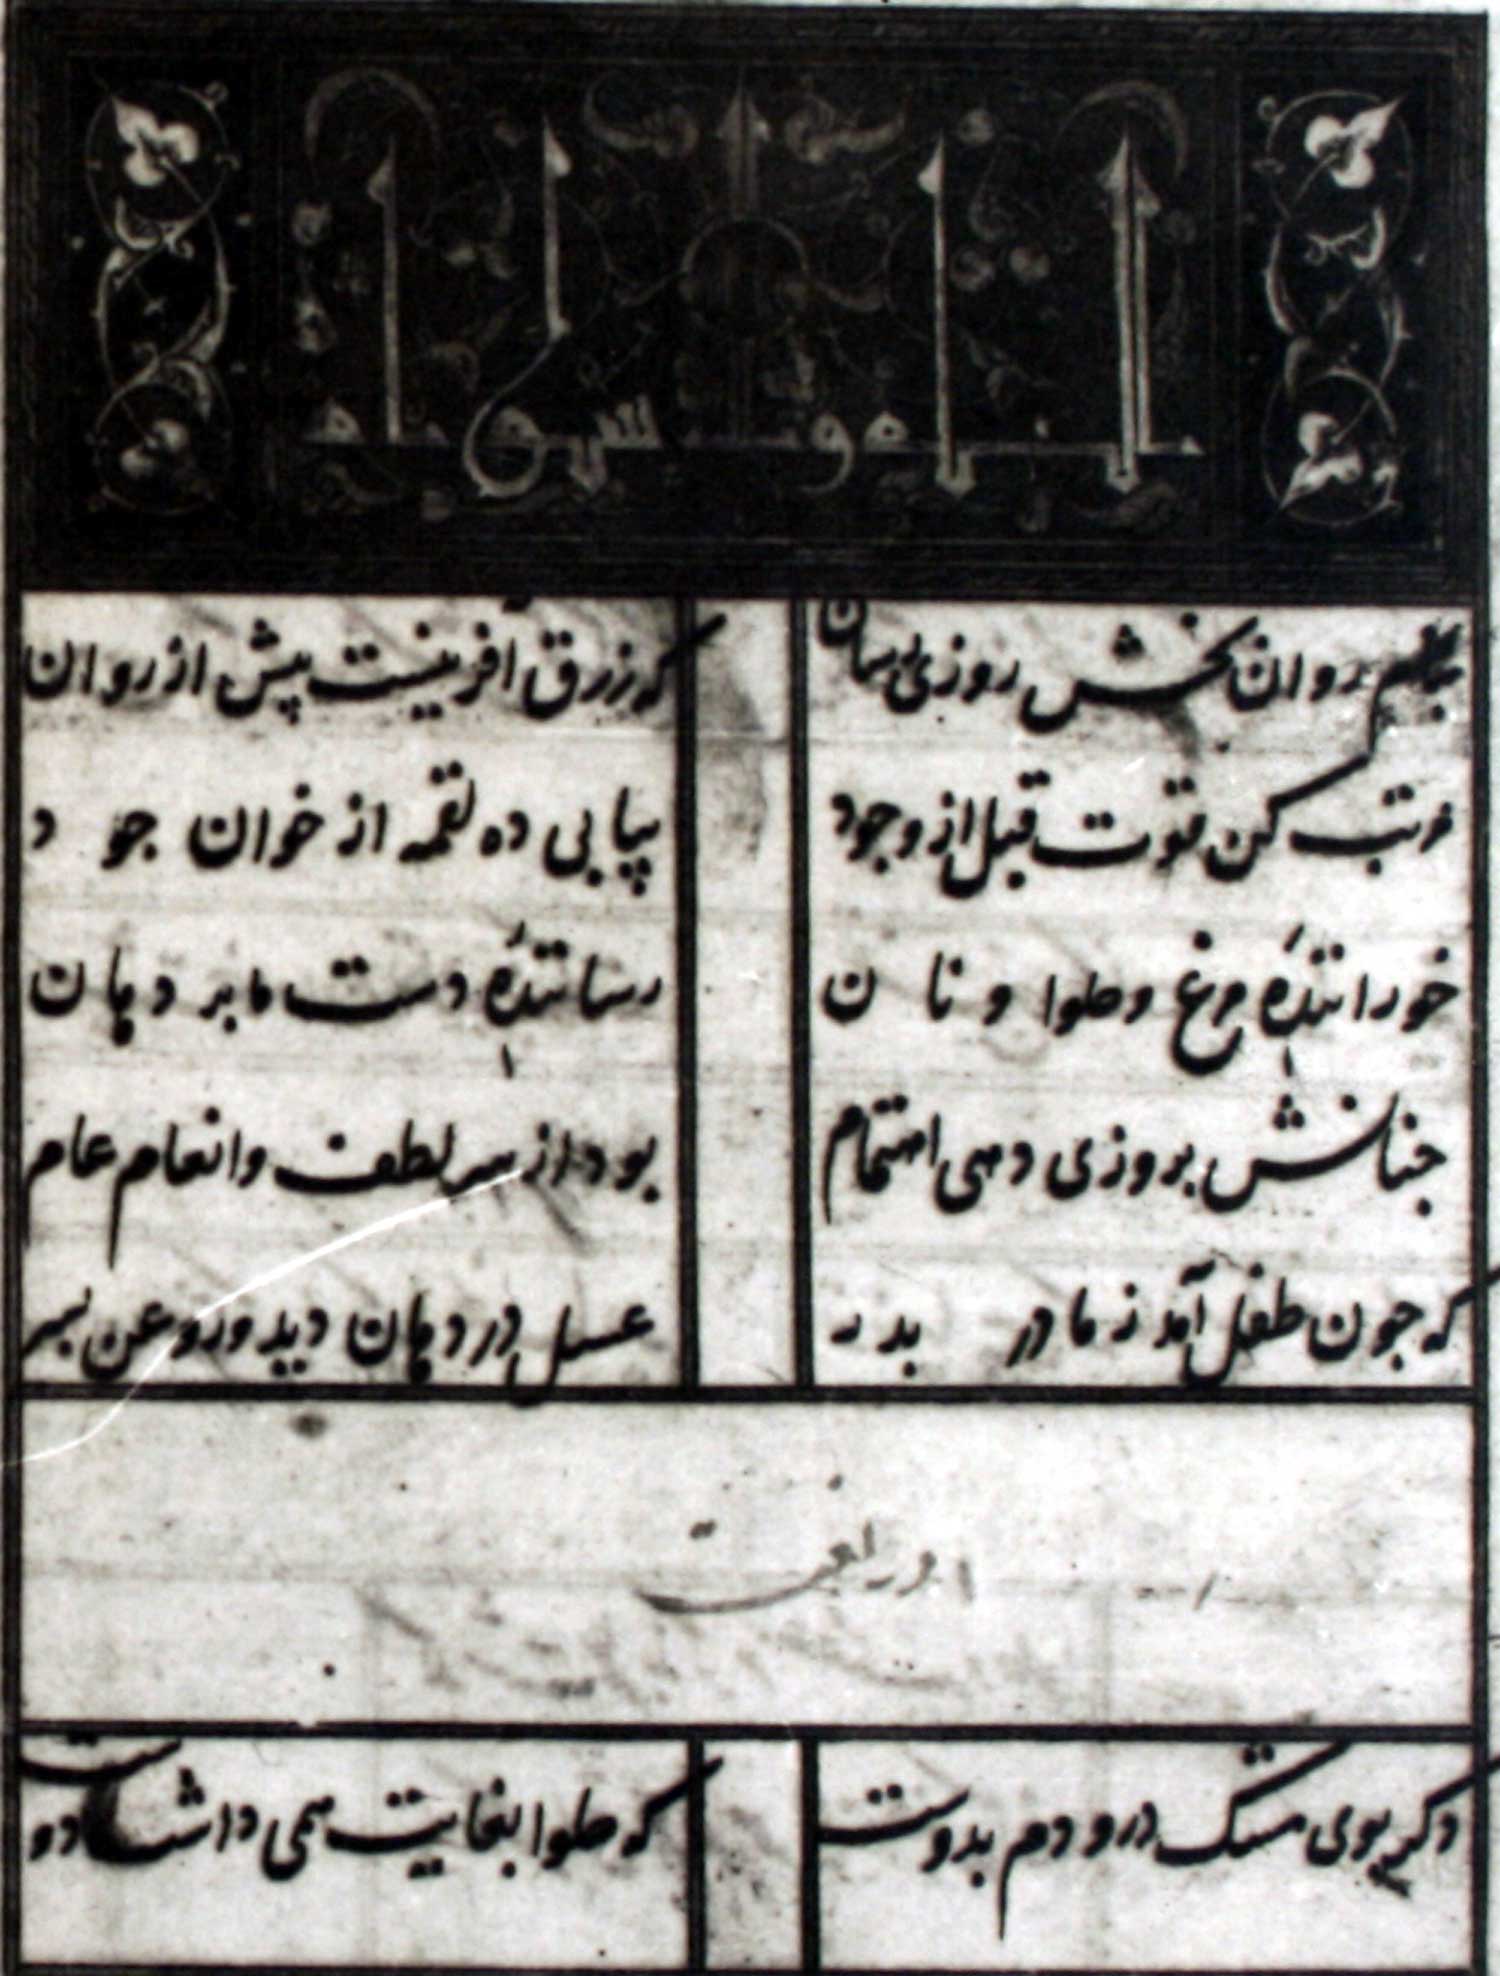 روان بخش روزی رسان
که رزق آفرینست پیش از روان
مرتب کن قوت قبل از وجود
پیاپی ده لقمه از خوان جود
خورانندهٔ مرغ و حلوا و نان
رسانندهٔ دست ما بر دهان
جنانش بروزی دهی اهتمام
بود از سر لطف و انعام عام
که جون طفل آمد ز مادر بدر
عسل در دهان دید و روغن بسر
در نعت
دکر بوی مشک درو دم بدوست
که حلوا بغایت همی داشت دوست